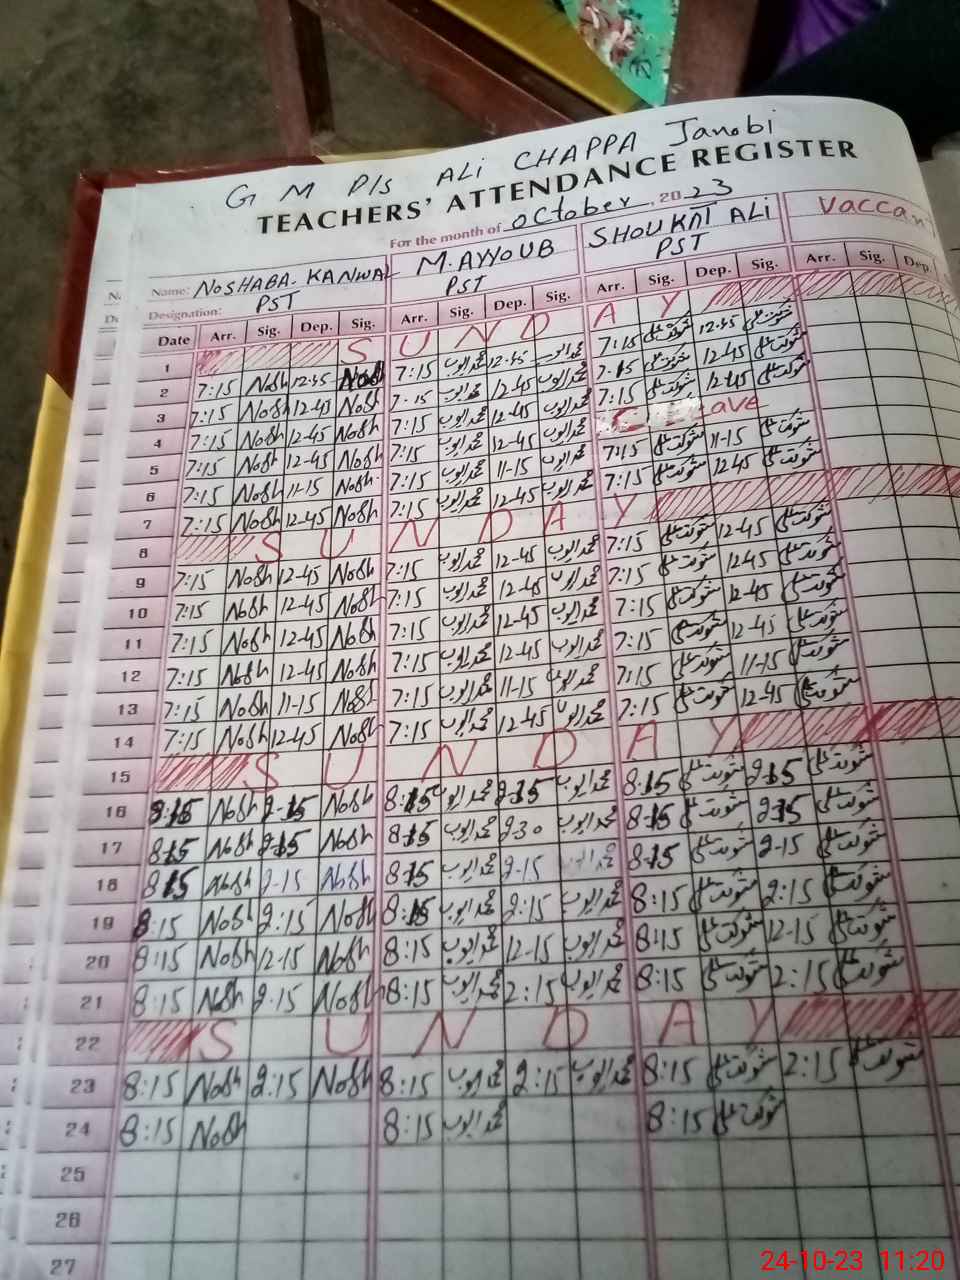 G M P/s ALi CHAPPA Janobi
TEACHERS' ATTENDANCE REGISTER
For the month of october, 2023
Name: NOSHABA. KANWAL M. AYYOUB SHOUKAT ALi Vaccant
Designation: PST PST PST
Date Arr. Sig. Dep. Sig. Arr. Sig. Dep. Sig. Arr. Sig. Dep. Sig. Arr. Sig. Dep.
1 SUNDAY
2 7:15 Nosh 12-45 Nosh 7:15 محمد ایوب 12-45 محمد ایوب 7:15 شوکت علی 12-45 شوکت علی
3 7:15 Nosh 12-45 Nosh 7:15 محمد ایوب 12-45 محمد ایوب 7:15 شوکت علی 12-45 شوکت علی
4 7:15 Nosh 12-45 Nosh 7:15 محمد ایوب 12-45 محمد ایوب 7:15 شوکت علی 12-45 شوکت علی
5 7:15 Nosh 12-45 Nosh 7:15 محمد ایوب 12-45 محمد ایوب
6 7:15 Nosh 11-15 Nosh 7:15 محمد ایوب 11-15 محمد ایوب 7:15 شوکت علی 11-15 شوکت علی
7 7:15 Nosh 12-45 Nosh 7:15 محمد ایوب 12-45 محمد ایوب 7:15 شوکت علی 1245 شوکت علی
8 SUNDAY
9 7:15 Nosh 12-45 Nosh 7:15 محمد ایوب 12-45 محمد ایوب 7:15 شوکت علی 12-45 شوکت علی
10 7:15 Nosh 12-45 Nosh 7:15 محمد ایوب 12-45 محمد ایوب 7:15 شوکت علی 1245 شوکت علی
11 7:15 Nosh 12-45 Nosh 7:15 محمد ایوب 12-45 محمد ایوب 7:15 شوکت علی 12-45 شوکت علی
12 7:15 Nosh 12-45 Nosh 7:15 محمد ایوب 12-45 محمد ایوب 7:15 شوکت علی 12-45 شوکت علی
13 7:15 Nosh 11-15 Nosh 7:15 محمد ایوب 11-15 محمد ایوب 7:15 شوکت علی 11-15 شوکت علی
14 7:15 Nosh 12-45 Nosh 7:15 محمد ایوب 12-45 محمد ایوب 7:15 شوکت علی 12-45 شوکت علی
15 SUNDAY
16 8:15 Nosh 2-15 Nosh 8:15 محمد ایوب 2-15 محمد ایوب 8:15 شوکت علی 2-15 شوکت علی
17 8:15 Nosh 2-15 Nosh 8:15 محمد ایوب 2-30 محمد ایوب 8:15 شوکت علی 2-15 شوکت علی
18 8:15 Nosh 2-15 Nosh 8:15 محمد ایوب 2-15 محمد ایوب 8:15 شوکت علی 2-15 شوکت علی
19 8:15 Nosh 2:15 Nosh 8:15 محمد ایوب 2:15 محمد ایوب 8:15 شوکت علی 2:15 شوکت علی
20 8:15 Nosh 12-15 Nosh 8:15 محمد ایوب 12-15 محمد ایوب 8:15 شوکت علی 12-15 شوکت علی
21 8:15 Nosh 2:15 Nosh 8:15 محمد ایوب 2:15 محمد ایوب 8:15 شوکت علی 2:15 شوکت علی
22 SUNDAY
23 8:15 Nosh 2:15 Nosh 8:15 محمد ایوب 2:15 محمد ایوب 8:15 شوکت علی 2:15 شوکت علی
24 8:15 Nosh 8:15 محمد ایوب 8:15 شوکت علی
25
26
27
24-10-23 11:20